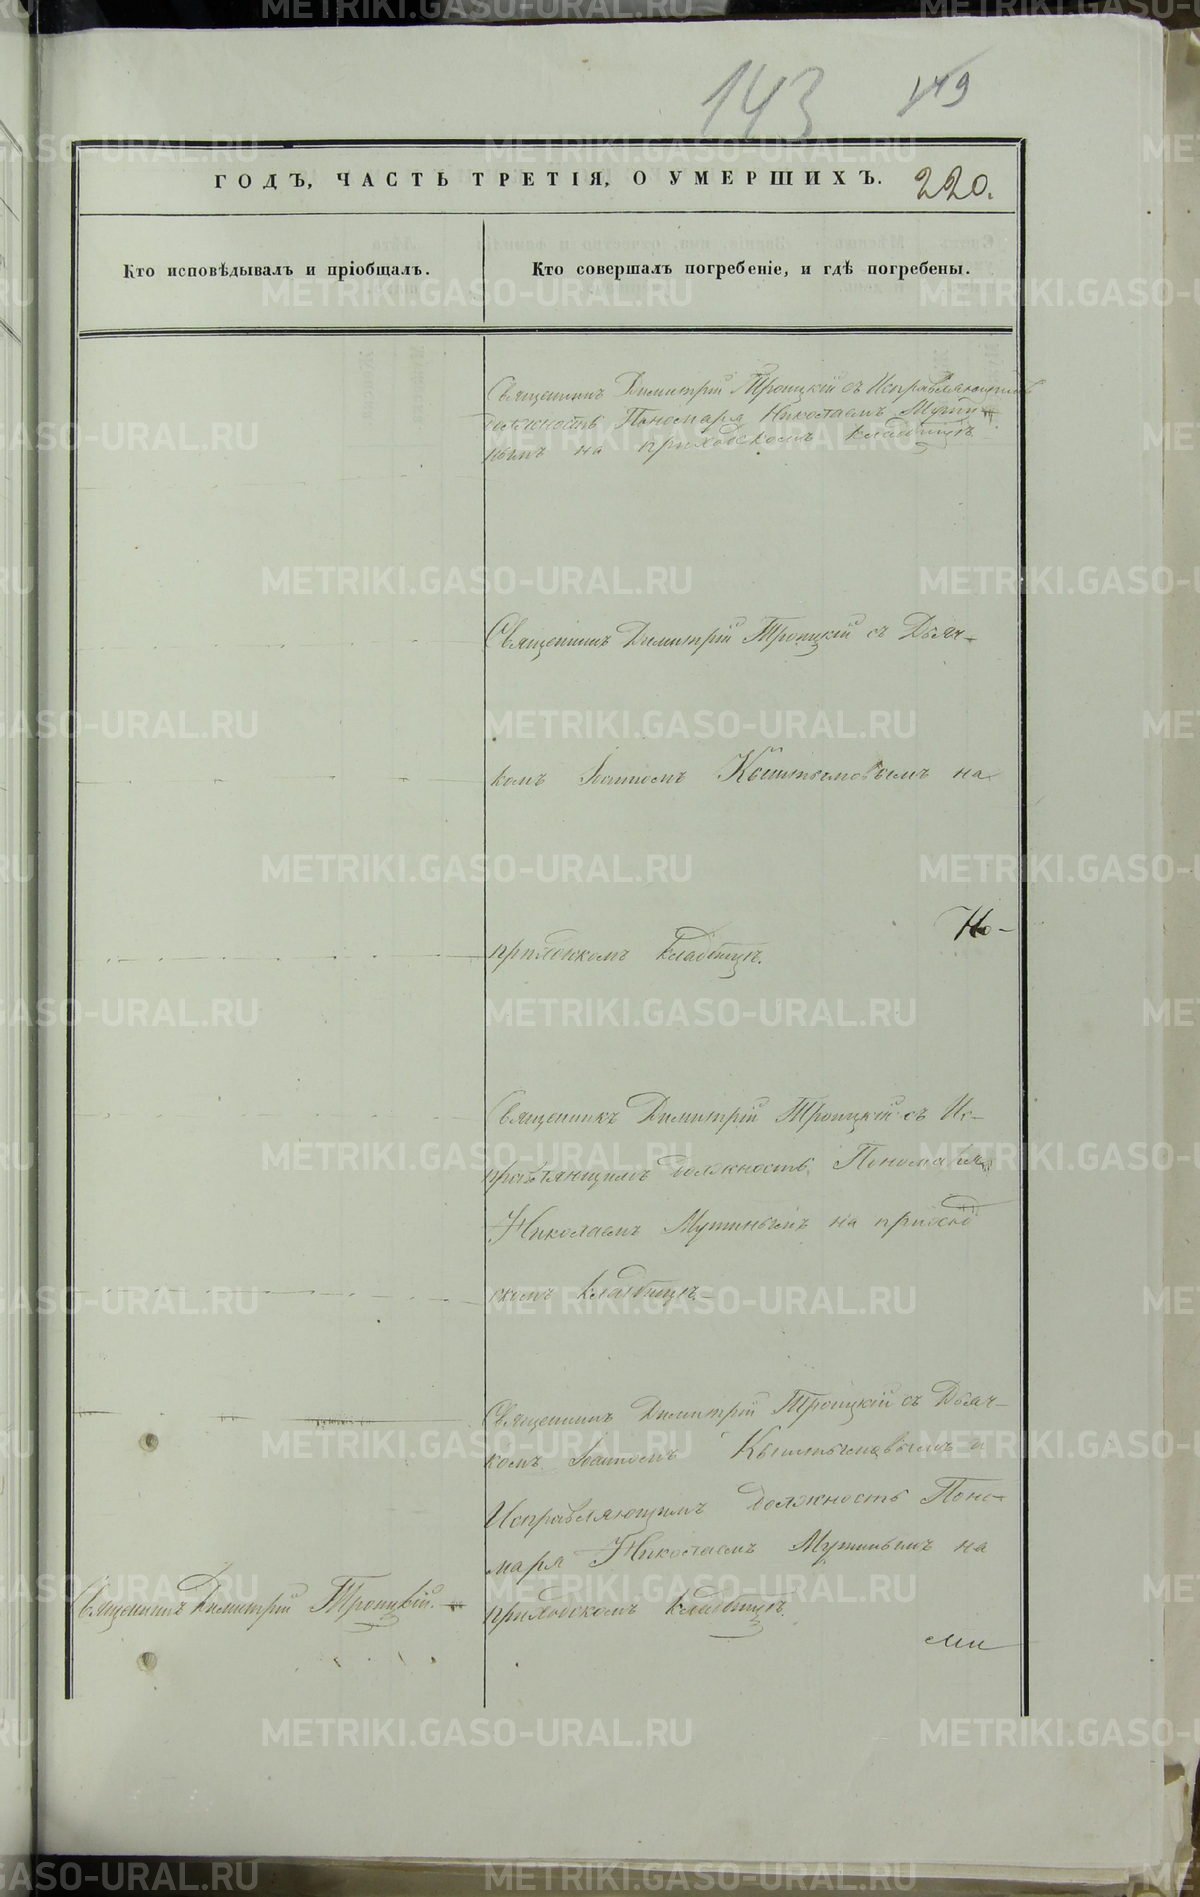 143 119
ГОДЪ, ЧАСТЬ ТРЕТІЯ, О УМЕРШИХЪ. 220.
Кто исповѣдывалъ и пріобщалъ.
Кто совершалъ погребеніе, и гдѣ погребены.
Священникъ Димитрій Троицкій съ Исправляющимъ
должность Пономаря Николаемъ Мути
нымъ на приходскомъ кладбищѣ.
Священникъ Димитрій Троицкій съ Дьяч-
комъ Іоанномъ Кыштымовымъ на
Но-
приходскомъ кладбищѣ.
Священникъ Димитрій Троицкій съ Ис-
правляющимъ должность Пономаря
Николаемъ Мутинымъ на приход
скомъ кладбищѣ.
Священникъ Димитрій Троицкій съ Дьяч-
комъ Іоанномъ Кыштымовымъ и
Исправляющимъ должность Поно-
маря Николаемъ Мутинымъ на
Священникъ Димитрій Троицкій.
приходскомъ кладбищѣ.
ми
METRIKI.GASO-URAL.RU